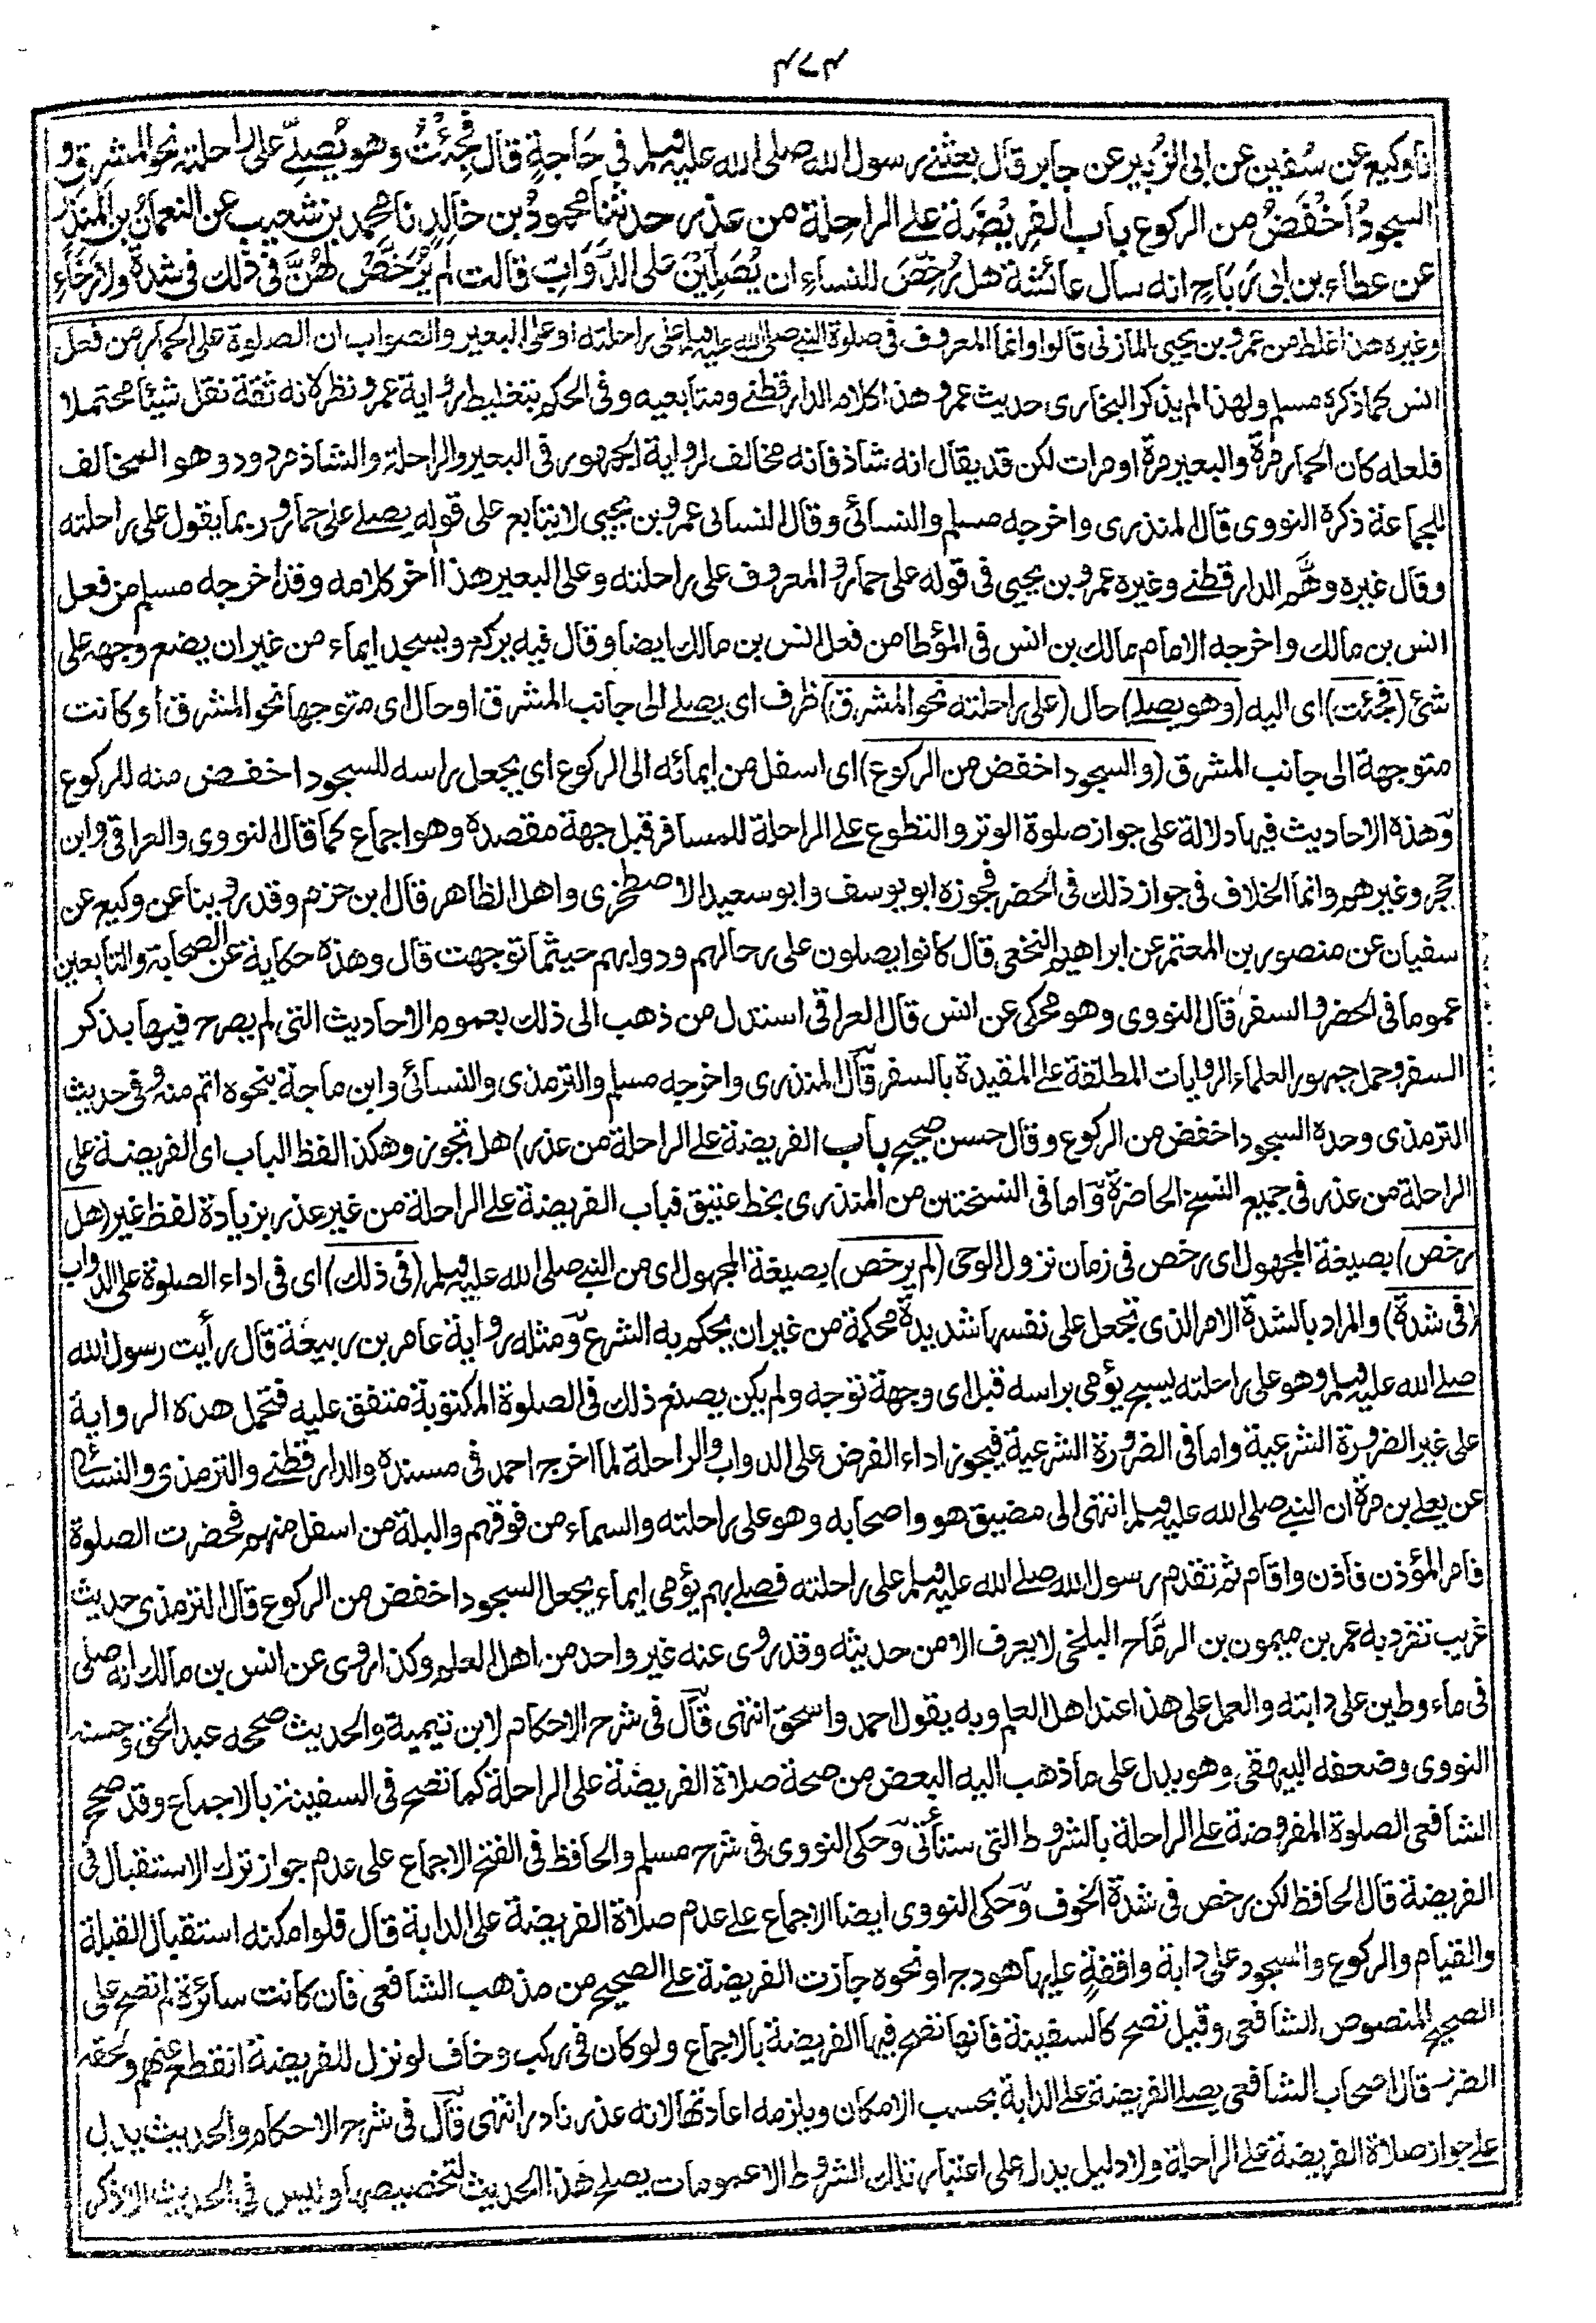 ٤٧٤
نا وكيع عن سُفين عن ابى الزُبير عن جابر قال بعثنى رسول الله صلى الله عليه وسلم فى حَاجةٍ قال فجِئْتُ وهو يُصلِّے على راحلته نحو المشرق و
السجودُ اَخْفَضُ من الركوع باب الفرِيْضَة على الراحِلة من عذر حدثنا محمودُ بن خالدٍ نا محمد بن شعيب عن النعمان بن المُنذر
عن عطاء بن ابى رَبَاحٍ انه سال عائشة هل رُخِّصَ للنساءِ ان يُصَلِّيْنَ على الدَّوَابِّ قالت لم يُرَخَّصْ لهُنَّ فى ذٰلك فى شدةٍ ولا رَخَاءٍ
وغيره هذا غلط من عمرو بن يحيى المازنى قالوا وانما المعروف فى صلوة النبى صلى الله عليه وسلم على راحلته او على البعير والصواب ان الصلوة على الحمار من فعل
انس كما ذكره مسلم ولهذا لم يذكر البخارى حديث عمرو هذا كلام الدارقطنے ومتابعيه وفى الحكم بتغليط رواية عمرو نظر لانه ثقة نقل شيئا محتملا
فلعله كان الحمار مرة والبعير مرة او مرات لكن قد يقال انه شاذ فانه مخالف لرواية الجمهور فى البعير والراحلة والشاذ مردود وهو المخالف
للجماعة ذكره النووى قال المنذرى واخرجه مسلم والنسائى وقال النسائى عمرو بن يحيى لا يتابع على قوله يصلے على حمار وربما يقول على راحلته
وقال غيره وهَّم الدارقطنے وغيره عمرو بن يحيى فى قوله على حمار والمعروف على راحلته وعلى البعير هذا اٰخر كلامه وقد اخرجه مسلم من فعل
انس بن مالك واخرجه الامام مالك بن انس فى المؤطا من فعل انس بن مالك ايضا وقال فيه يركع ويسجد ايماء من غير ان يضع وجهه على
شئ (فجئت) اى اليه (وهو يصلے) حال (على راحلته نحو المشرق) ظرف اى يصلے الى جانب المشرق او حال اى متوجها نحو المشرق او كانت
متوجهة الى جانب المشرق (والسجود اخفض من الركوع) اى اسفل من ايمائه الى الركوع اى يجعل راسه للسجود اخفض منه للركوع
وهذه الاحاديث فيها دلالة على جواز صلوة الوتر والتطوع على الراحلة للمسافر قبل جهة مقصده وهو اجماع كما قال النووى والعراقى وابن
حجر وغيرهم وانما الخلاف فى جواز ذلك فى الحضر فجوزه ابو يوسف وابو سعيد الاصطخرى واهل الظاهر قال ابن حزم وقد روينا عن وكيع عن
سفيان عن منصور بن المعتمر عن ابراهيم النخعى قال كانوا يصلون على رحالهم ودوابهم حيثما توجهت قال وهذه حكاية عن الصحابة والتابعين
عموما فى الحضر والسفر قال النووى وهو محكى عن انس قال العراقى استدل من ذهب الى ذلك بعموم الاحاديث التى لم يصرح فيها بذكر
السفر وحمل جمهور العلماء الروايات المطلقة على المقيدة بالسفر قال المنذرى واخرجه مسلم والترمذى والنسائى وابن ماجة بنحوه اتم منه وفى حديث
الترمذى وحده السجود اخفض من الركوع وقال حسن صحيح باب الفريضة على الراحلة من عذر) هل تجوز وهكذا لفظ الباب اى الفريضة على
الراحلة من عذر فى جميع النسخ الحاضرة واما فى النسختين من المنذرى بخط عتيق فباب الفريضة على الراحلة من غير عذر بزيادة لفظ غير (هل
رخص) بصيغة المجهول اى رخص فى زمان نزول الوحى (لم يرخص) بصيغة المجهول اى من النبى صلى الله عليه وسلم (فى ذلك) اى فى اداء الصلوة على الدواب
(فى شدة) والمراد بالشدة الامر الذى تجعل على نفسها شديدة محكمة من غير ان يحكم به الشرع ومثله رواية عامر بن ربيعة قال رأيت رسول الله
صلے الله عليه وسلم وهو على راحلته يسبح يؤمى براسه قبل اى وجهة توجه ولم يكن يصنع ذلك فى الصلوة المكتوبة متفق عليه فتحمل هذه الرواية
على غير الضرورة الشرعية واما فى الضرورة الشرعية فيجوز اداء الفرض على الدواب والراحلة لما اخرج احمد فى مسنده والدارقطنے والترمذى والنسائى
عن يعلے بن مرة ان النبى صلى الله عليه وسلم انتهى الى مضيق هو واصحابه وهو على راحلته والسماء من فوقهم والبلة من اسفل منهم فحضرت الصلوة
فامر المؤذن فاذن واقام ثم تقدم رسول الله صلے الله عليه وسلم على راحلته فصلے بهم يؤمى ايماء يجعل السجود اخفض من الركوع قال الترمذى حديث
غريب تفرد به عمر بن ميمون بن الرمّاح البلخى لا يعرف الا من حديثه وقد روى عنه غير واحد من اهل العلم وكذا روى عن انس بن مالك انه صلى
فى ماء وطين على دابته والعمل على هذا عند اهل العلم وبه يقول احمد واسحق انتهى قال فى شرح الاحكام لابن تيمية والحديث صححه عبد الحق وحسنه
النووى وضعفه البيهقى وهو يدل على ما ذهب اليه البعض من صحة صلاة الفريضة على الراحلة كما تصح فى السفينة بالاجماع وقد صحح
الشافعى الصلوة المفروضة على الراحلة بالشروط التى ستأتى وحكى النووى فى شرح مسلم والحافظ فى الفتح الاجماع على عدم جواز ترك الاستقبال فى
الفريضة قال الحافظ لكن رخص فى شدة الخوف وحكى النووى ايضا الاجماع على عدم صلاة الفريضة على الدابة قال فلو امكنه استقبال القبلة
والقيام والركوع والسجود على دابة واقفةٍ عليها هودج او نحوه جازت الفريضة على الصحيح من مذهب الشافعى فان كانت سائرة لم تصح على
الصحيح المنصوص للشافعى وقيل تصح كالسفينة فانها تصح فيها الفريضة بالاجماع ولو كان فى ركب وخاف لو نزل للفريضة انقطع عنهم ولحقه
الضرر قال اصحاب الشافعى يصلے الفريضة على الدابة بحسب الامكان ويلزمه اعادتها لانه عذر نادر انتهى قال فى شرح الاحكام والحديث يدل
على جواز صلاة الفريضة على الراحلة ولا دليل يدل على اعتبار تلك الشروط الا عمومات يصلح هذا الحديث لتخصيصها وليس فى الحديث الا ذكر